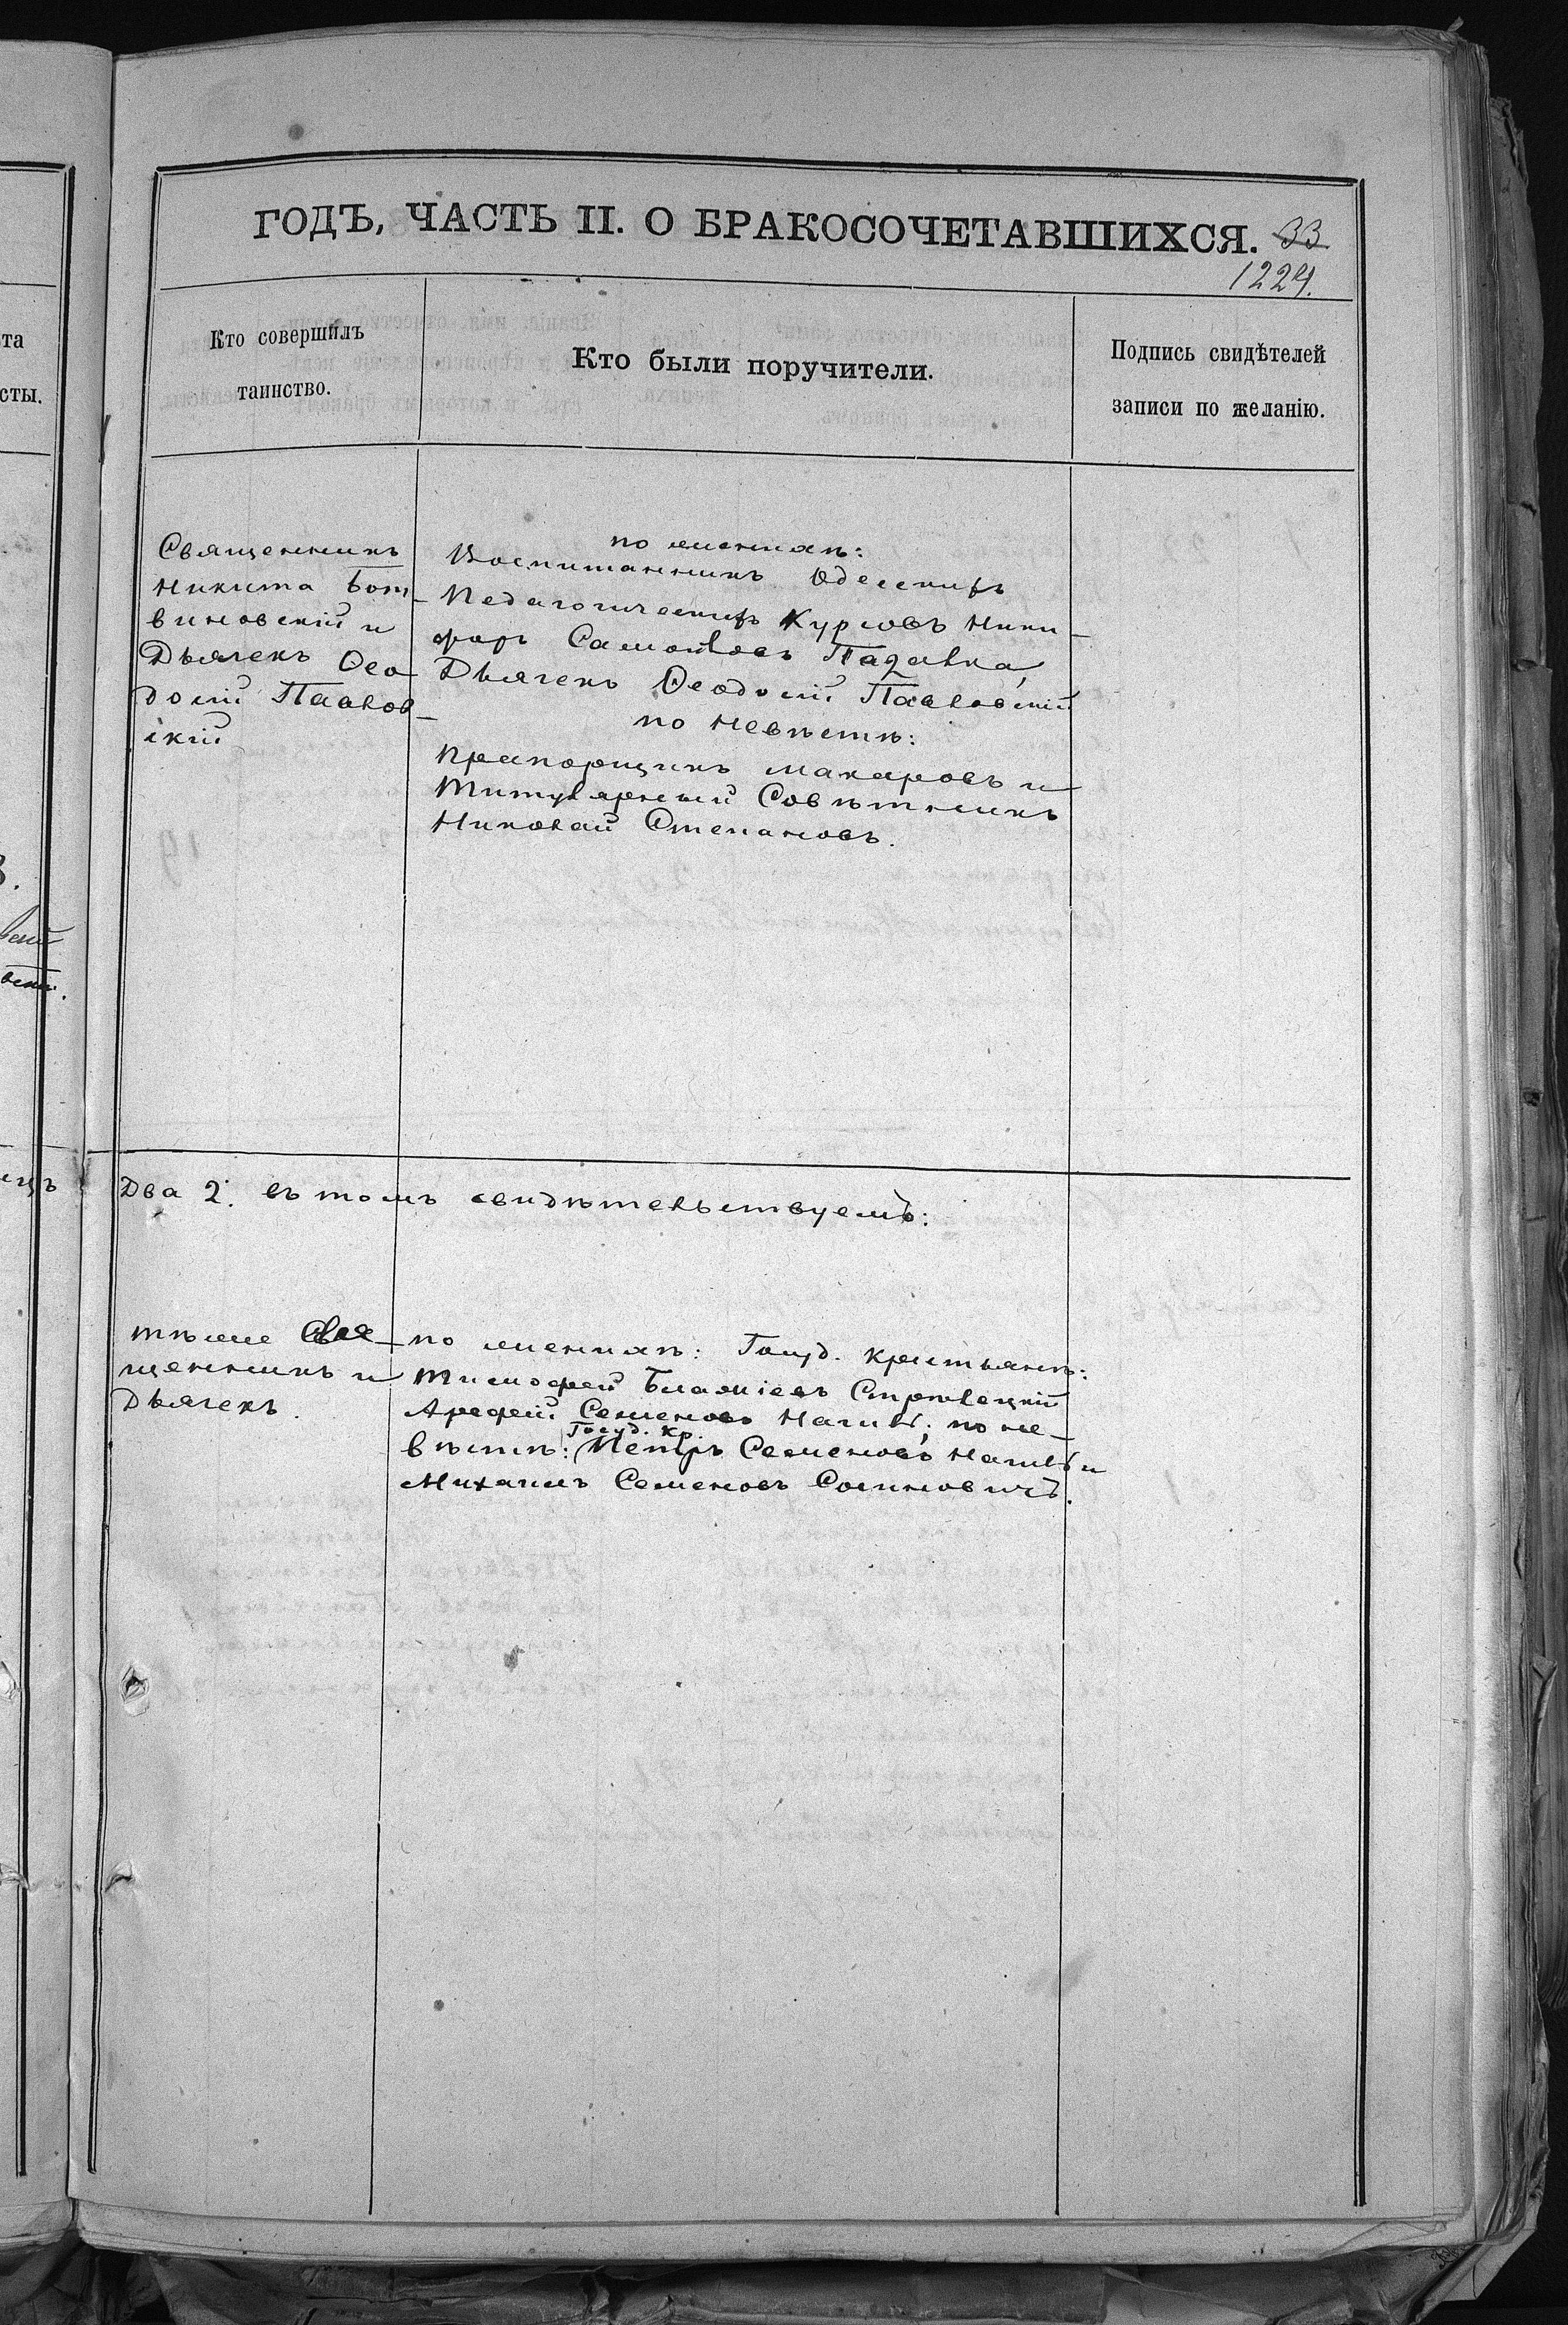 та
сты.
ГОДЪ, ЧАСТЬ II. О БРАКОСОЧЕТАВШИХСЯ. 33
1224.
Кто совершилъ
таинство.
Кто были поручители.
Подпись свидѣтелей
записи по желанію.
Священникъ
Никита Бот-
виновскій и
Дьячекъ Ѳео-
досій Павлов-
скій
по женихѣ:
Воспитанникъ Одесскихъ
Педагогическихъ Курсовъ Ники-
форъ Самойловъ
Дьячекъ Ѳеодосій Павловскій
по невѣстѣ:
Прапорщикъ Макаровъ и
Титулярный Совѣтникъ
Николай Степановъ.
Два 2. въ томъ свидѣтельствуемъ:
тѣже Свя-
щенникъ и
Дьячекъ.
по женихѣ: Госуд. крестьяне:
Тимофей
Арефій Семеновъ по не-
Госуд. кр.
вѣстѣ: Петръ Семеновъ и
Михаилъ Семеновъ